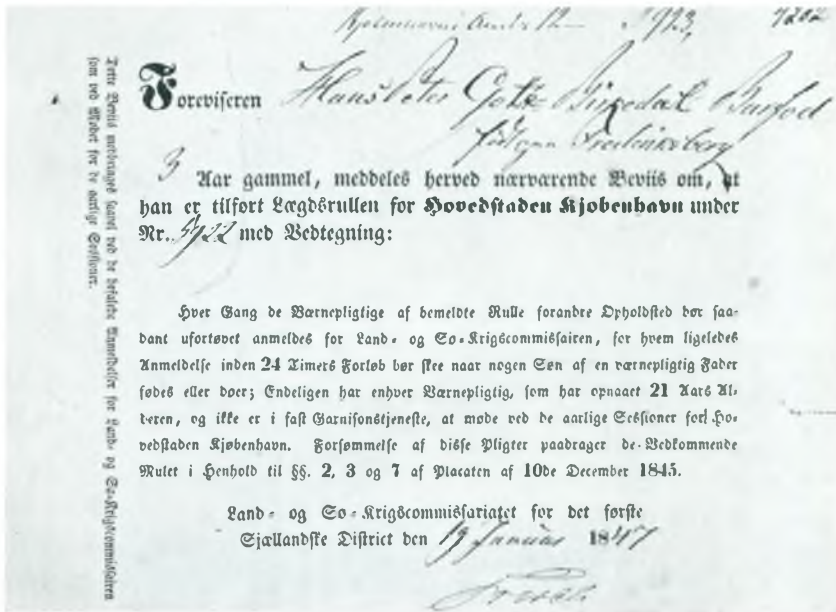 Kjøbenhavns Amts 12 923, 7202
Foreviseren Hans Peter Gote Birkedal Barfod
Frederiksberg
3 Aar gammel, meddeles herved nærværende Beviis om, at
han er tilført Lægdsrullen for Hovedstaden Kjøbenhavn under
Nr. 5922 med Vedtegning:
Hver Gang de Værnepligtige af bemeldte Rulle forandre Opholdsted bør saa-
dant ufortøvet anmeldes for Land- og Sø-Krigscommissairen, for hvem ligeledes
Anmeldelse inden 24 Timers Forløb bør skee naar nogen Søn af en værnepligtig Fader
fødes eller døer; Endeligen har enhver Værnepligtig, som har opnaaet 21 Aars Al-
deren, og ikke er i fast Garnisonstjeneste, at møde ved de aarlige Sessioner for Ho-
vedstaden Kjøbenhavn. Forsømmelse af disse Pligter paadrager de Vedkommende
Mulct i Henhold til §§. 2, 3 og 7 af Placaten af 10de December 1845.
Land- og Sø-Krigscommissariatet for det første
Sjællandske District den 19 Januar 1847
Dette Beviis medbringes saavel ved de befalede Anmeldelser for Land- og Sø-Krigscommissairen
som ved Mødet for de aarlige Sessioner.